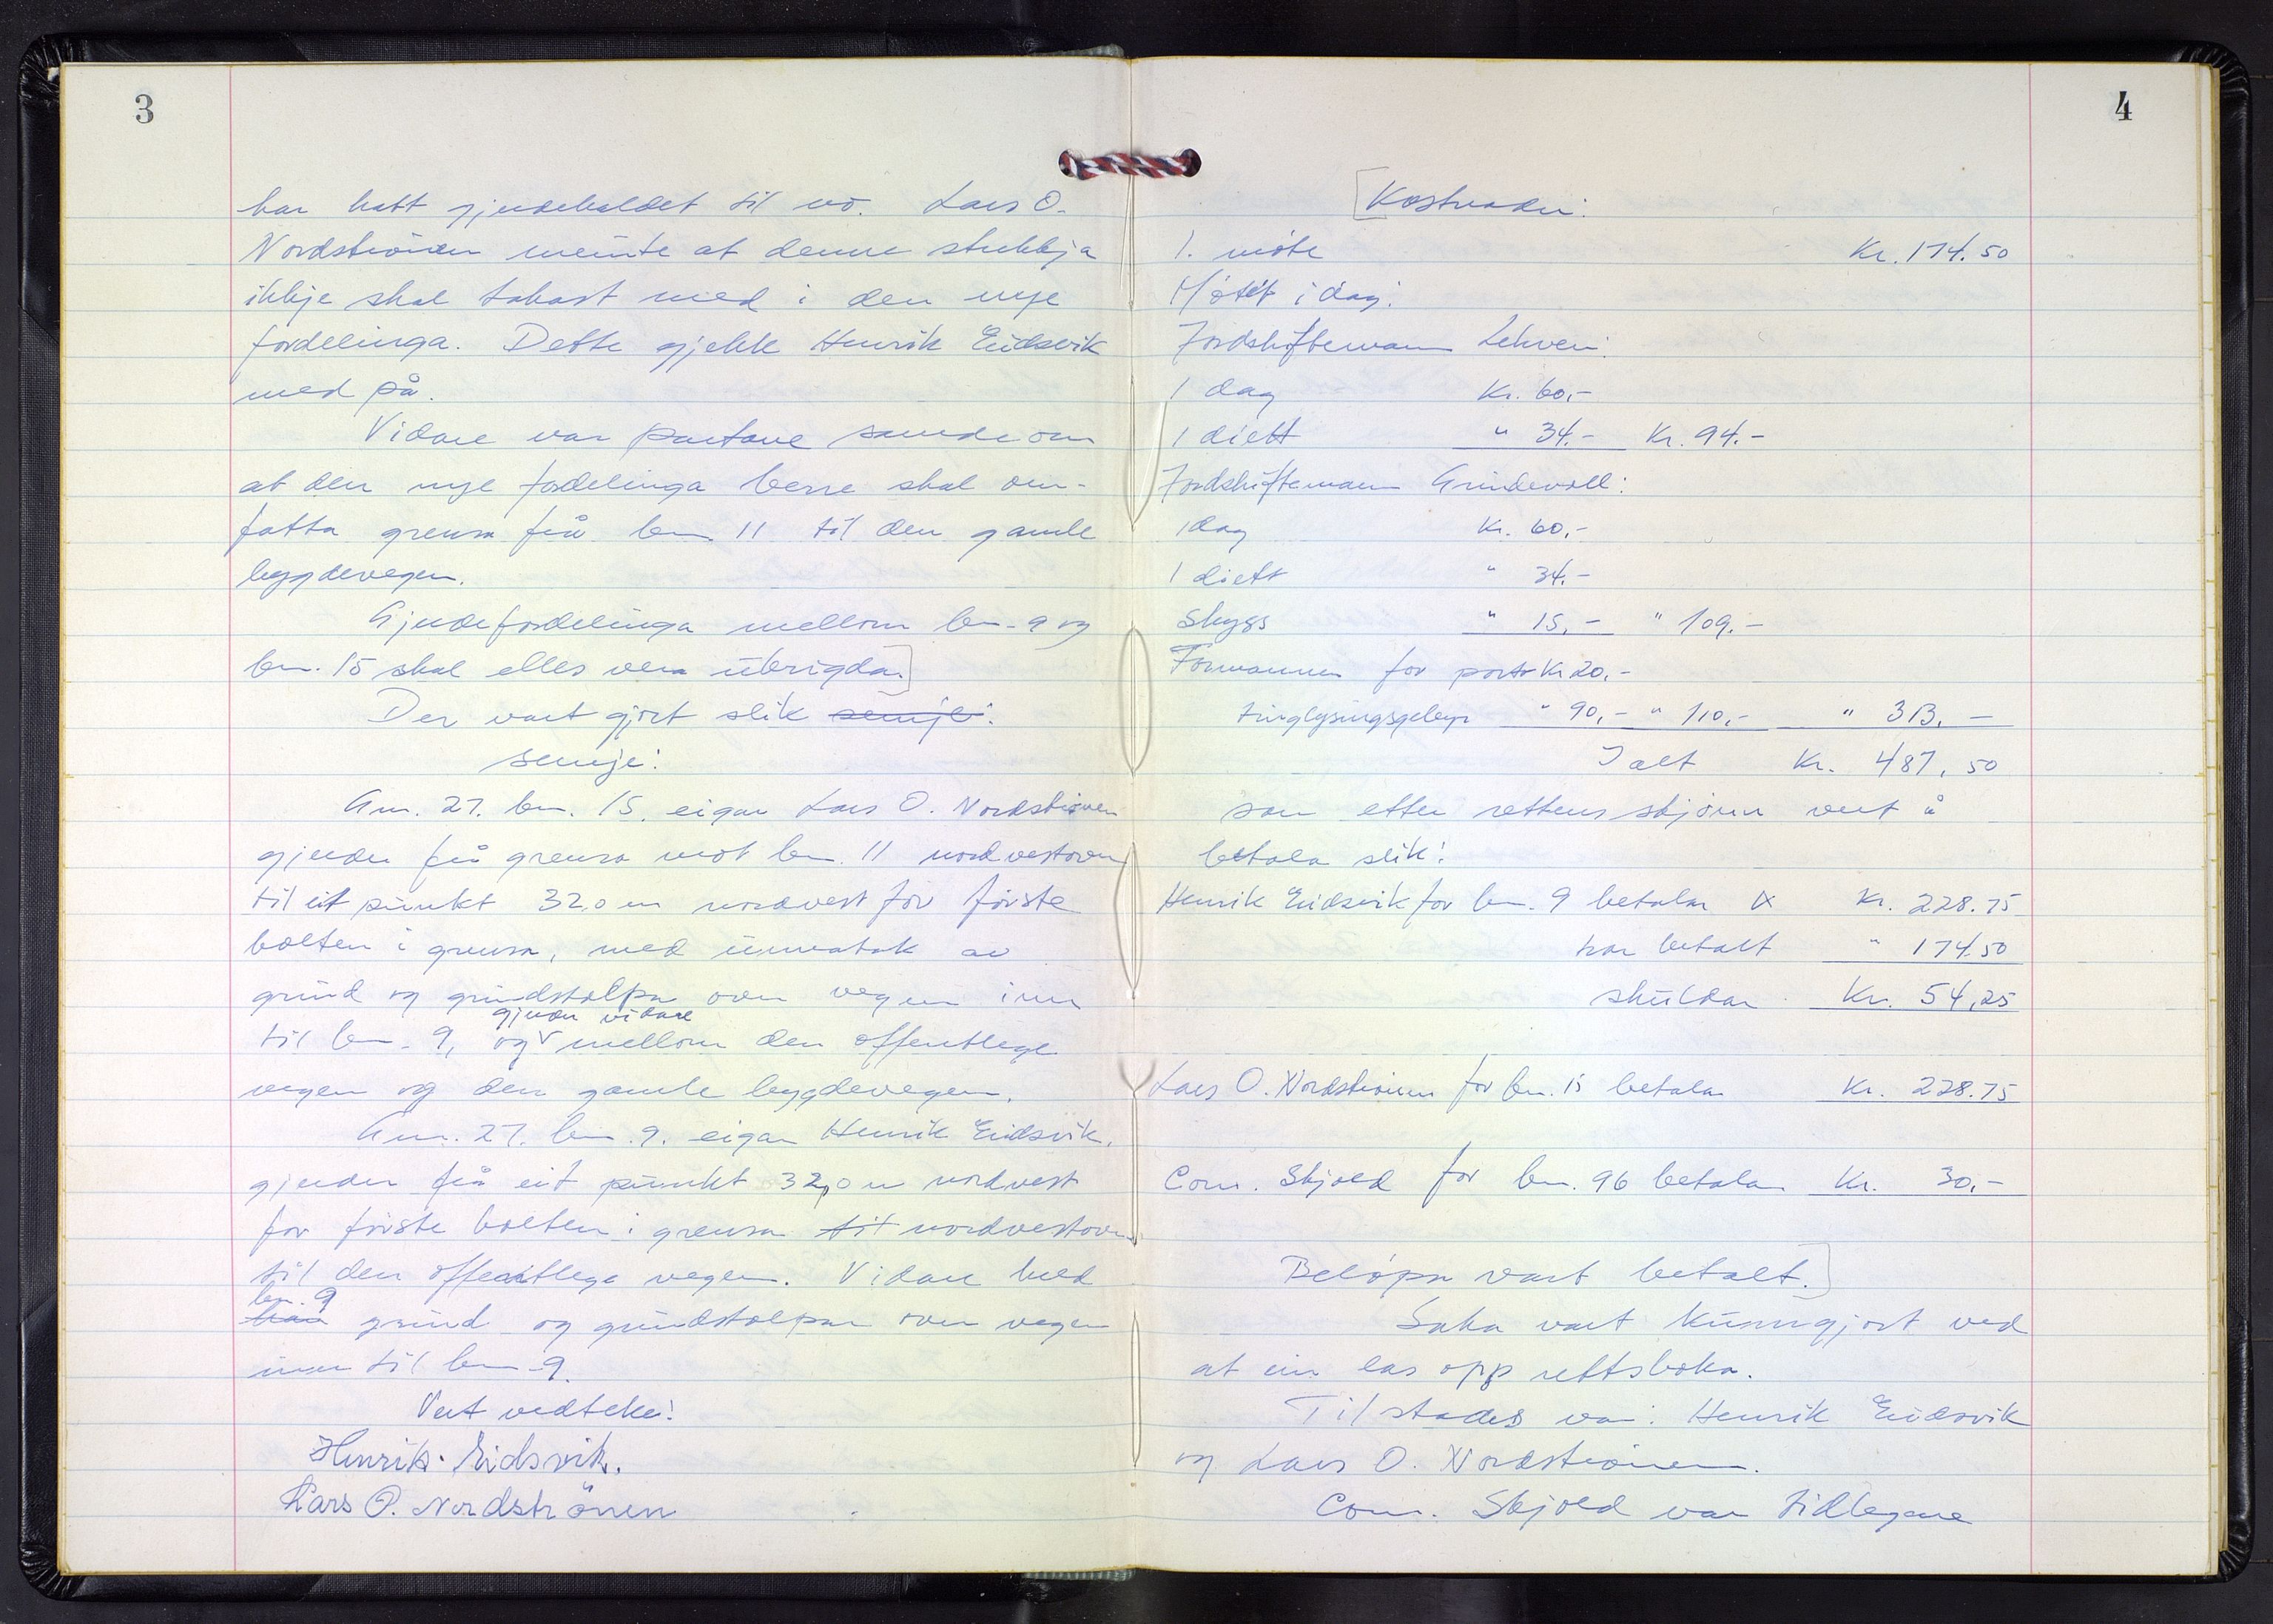 3
har hatt gjerdehaldet til no. Lars O.
Nordströnen meinte at denne stubbja
ikkje skal takast med i den nye
fordelinga. Dette gjekk Henrik Eidsvik
med på.
Vidare var partane samde om
at den nye fordelinga berre skal om-
fatta grensa frå bn. 11 til den gamle
bygdevegen.
Gjerdefordelinga mellom bn. 9 og
bn. 15 skal elles vera ubrigda.]
Der vart gjort slik semje:
semje:
Gnr. 27. bn. 15. eigar Lars O. Nordströnen
gjerder frå grensa mot bn. 11 nordvestover
til eit punkt 32,0 m nordvest for förste
bolten i grensa, med unnatak av
grind og grindstolpar over vegen inn
gjerder vidare
til bn. 9, og mellom den offentlege
vegen og den gamle bygdevegen.
Gnr. 27. bn. 9. eigar Henrik Eidsvik.
gjerder frå eit punkt 32,0 m nordvest
for förste bolten i grensa til nordvestover
til den offentlege vegen. Vidare held
bn. 9
han grind og grindstolpar over vegen
inn til bn. 9.
Vert vedteke:
Henrik Eidsvik.
Lars O. Nordströnen
4
[Kostnader:
1. möte Kr. 174.50
Mötet i dag:
Jordskiftemann Lekven:
1 dag Kr. 60,-
1 diett " 34.- Kr. 94.-
Jordskiftemann Grindevoll:
1 dag Kr. 60,-
1 diett " 34.-
Skyss " 15,- " 109.-
Formannen for porto Kr 20,-
tinglysingsgebyr " 90,- " 110,- " 313,-
I alt Kr. 487,50
som etter rettens skjönn vert å
betala slik:
Henrik Eidsvik for bn. 9 betalar Kr. 228.75
har betalt " 174.50
skuldar Kr. 54,25
Lars O. Nordströnen for bn. 15 betalar Kr. 228.75
Corn. Skjold for bn. 96 betalar Kr. 30,-
Belöpa vart betalt.]
Saka vart kunngjort ved
at ein las opp rettsboka.
Til stades var: Henrik Eidsvik
og Lars O. Nordströnen.
Corn. Skjold var tidlegare